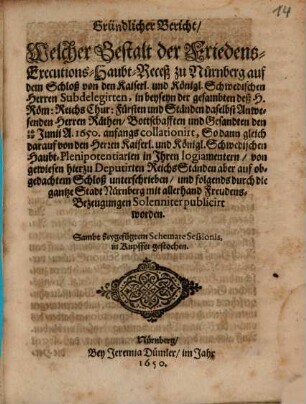 14
Gründlicher Bericht/
Welcher Gestalt der Friedens-
Executions-Haubt-Receß zu Nürnberg auf
dem Schloß von den Kaiserl. und Königl. Schwedischen
Herren Subdelegirten, in beyseyn der gesambten deß H.
Röm: Reichs Chur: Fürsten und Ständen daselbst Anwe-
senden Herren Räthen/ Bottschafften und Gesandten den
Junii A. 1650. anfangs collationirt, So dann gleich
darauf von den Herren Kaiserl. und Königl. Schwedischen
Haubt-Plenipotentiarien in Ihren logiamentern/ von
gewiesen hierzu Depuirten Reichs Ständen aber auf ob-
gedachtem Schloß unterschrieben/ und folgends durch die
gantze Stadt Nürnberg mit allerhand Freudens-
Bezeigungen Solenniter publicirt
worden.
Sambt beygefügtem Schemate Sessionis,
in Kupffer gestochen.
Nürnberg/
Bey Jeremia Dümler/ im Jahr
1650.